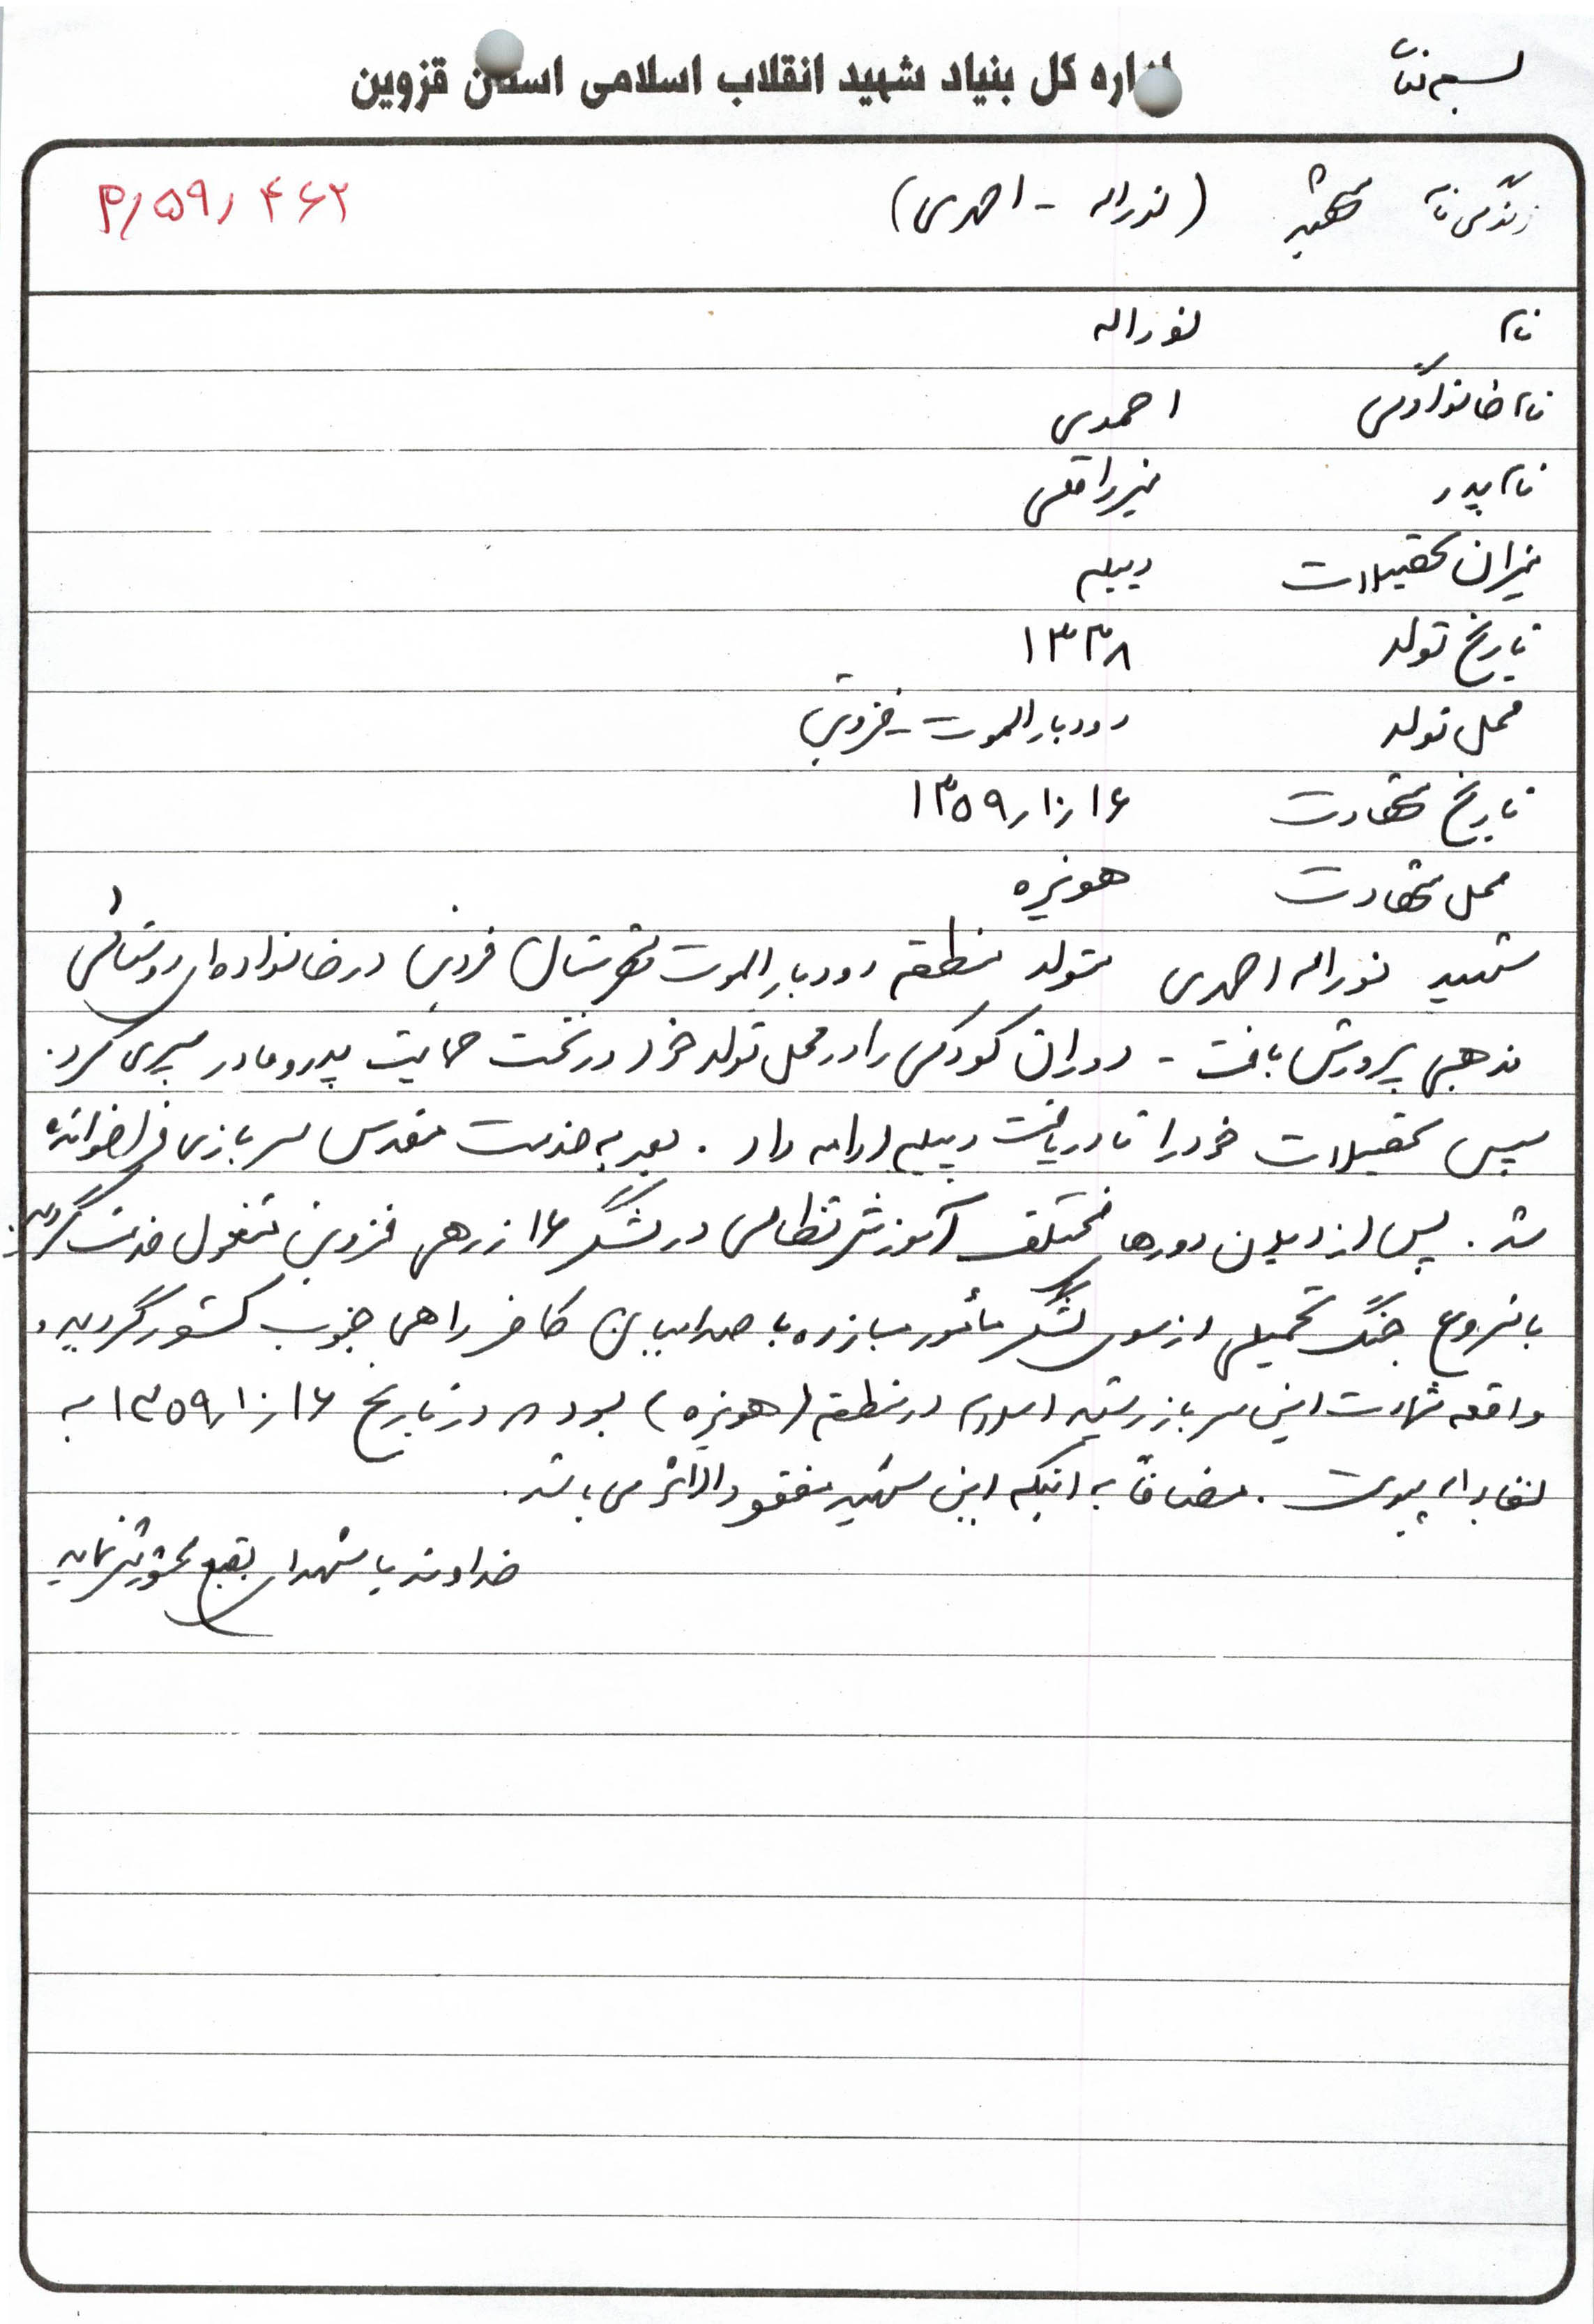 بسمه تعالی
اداره کل بنیاد شهید انقلاب اسلامی استان قزوین
زندگی نامه شهید (نوراله - احمدی)
م/۵۹/۴۶۲
نام نوراله
نام خانوادگی احمدی
نام پدر میرزاقلی
میزان تحصیلات دیپلم
تاریخ تولد ۱۳۳۸
محل تولد رودبار الموت - قزوین
تاریخ شهادت ۱۳۵۹/۱۰/۱۶
محل شهادت هویزه
شهید نوراله احمدی متولد منطقه رودبار الموت شهرستان قزوین در خانواده ای روستائی
مذهبی پرورش یافت - دوران کودکی را در محل تولد خود در تحت حمایت پدر و مادر سپری کرد.
سپس تحصیلات خود را تا دریافت دیپلم ادامه داد . بعد به خدمت مقدس سربازی فراخوانده
شد . پس از دیدن دورها مختلف آموزش نظامی در لشگر ۱۶ زرهی قزوین مشغول خدمت گردید.
با شروع جنگ تحمیلی از سوی لشگر مأمور مبارزه با صدامیان کافر راهی جنوب کشور گردید و
واقعه شهادت این سرباز رشید اسلام در منطقه (هویزه) بود در تاریخ ۱۳۵۹/۱۰/۱۶ به
لقاء اله پیوست . مضافاً به اینکه این شهید مفقودالاثر می باشد.
خداوند با شهدای بقیع محشورش نماید